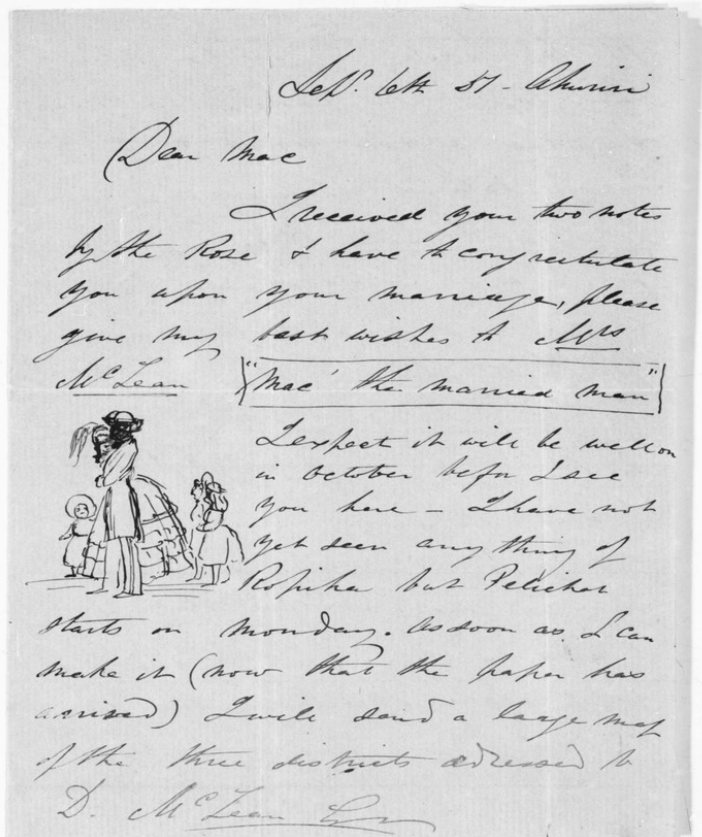 Sepr. 6th 51 - Ahuriri
Dear Mac
I received your two notes
by the Rose & have to congratulate
you upon your marriage, please
give my best wishes to Mrs
McLean "Mac' the married man"
I expect it will be well on
in October befor I see
you here - I have not
yet seen any thing of
but Pelichet
starts on monday. as soon as I can
make it (now that the paper has
arrived) I will send a large map
of the three districts adressed to
D. McLean Esq